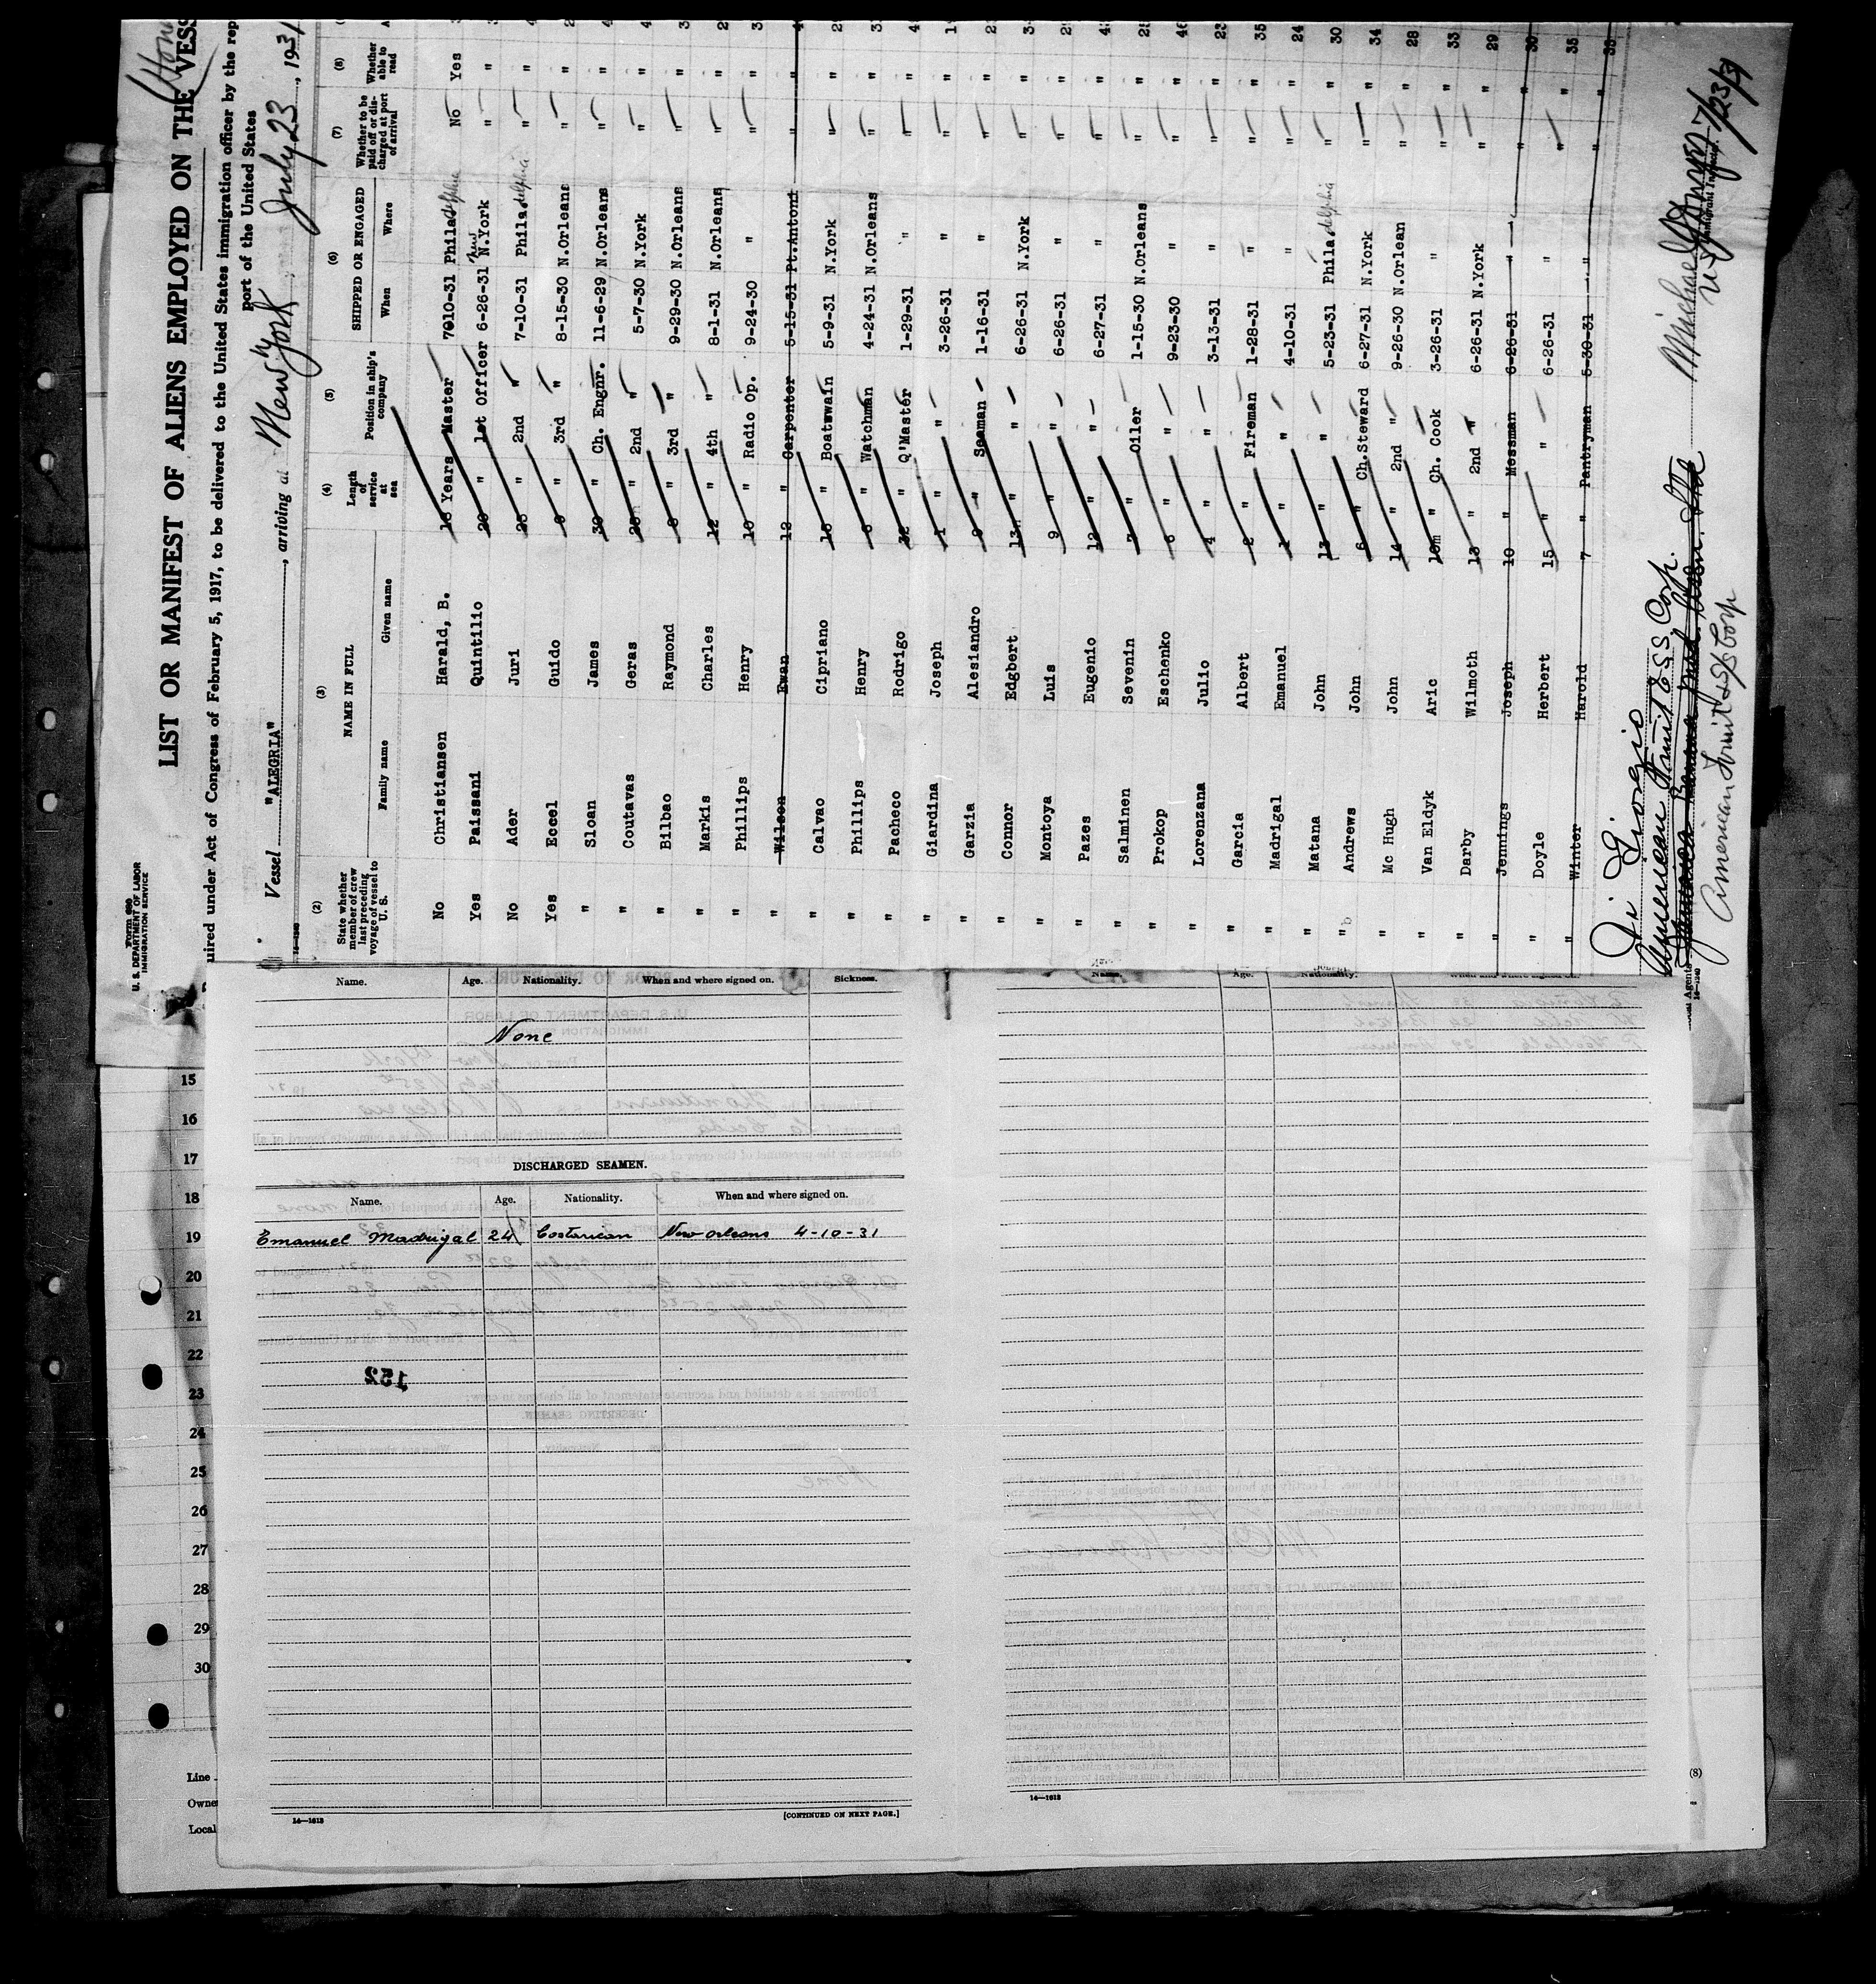 Form 680
U. S. DEPARTMENT OF LABOR
IMMIGRATION SERVICE
LIST OR MANIFEST OF ALIENS EMPLOYED ON THE VESS
uired under Act of Congress of February 5, 1917, to be delivered to the United States immigration officer by the rep
port of the United States
Vessel "ALEGRIA", arriving at New York, July 23, 1931
(2) (3) (4) (5) (6) (7) (8)
State whether member of crew last preceding voyage of vessel to U. S. NAME IN FULL Length of service at sea Position in ship's company SHIPPED OR ENGAGED Whether to be paid off or discharged at port of arrival Whether able to read
Family name Given name When Where
No Christiansen Harald, B. 18 Years Master 7010-31 Philadelphia No Yes
Yes Paissani Quintilio 20 " 1st Officer 6-26-31 New N.York " "
No Ader Juri 25 " 2nd " 7-10-31 Philadelphia " "
Yes Eccel Guido " 3rd " 8-15-30 N.Orleans " "
" Sloan James 30 " Ch. Engnr. 11-6-29 N.Orleans " "
" Coutavas Geras 25 " 2nd " 5-7-30 N.York " "
" Bilbao Raymond " 3rd " 9-29-30 N.Orleans " "
" Markis Charles 12 " 4th " 8-1-31 N.Orleans " "
" Phillips Henry 10 " Radio Op. 9-24-30 " " "
" Wilson Ewan 12 " Carpenter 5-15-31 Pt.Antoni " "
" Calvao Cipriano 15 " Boatswain 5-9-31 N.York " "
" Phillips Henry " Watchman 4-24-31 N.Orleans " "
" Pacheco Rodrigo " Q'Master 1-29-31 " " "
" Giardina Joseph 1 " " 3-26-31 " " "
" Garzia Alesiandro " Seaman 1-16-31 " " "
" Connor Edgbert 13 " " 6-26-31 N.York " "
" Montoya Luis 9 " " 6-26-31 " " "
" Pazes Eugenio 12 " " 6-27-31 " " "
" Salminen Sevenin 7 " Oiler 1-15-30 N.Orleans " "
" Prokop Eschenko 6 " " 9-23-30 " " "
" Lorenzana Julio 4 " " 3-13-31 " " "
" Garcia Albert 2 " Fireman 1-28-31 " " "
" Madrigal Emanuel 1 " " 4-10-31 " " "
" Matana John 13 " " 5-23-31 Philadelphia " "
" Andrews John 6 " Ch.Steward 6-27-31 N.York " "
" Mc Hugh John 14 " 2nd " 9-26-30 N.Orlean " "
" Van Eldyk Aric 10m " Ch. Cook 3-26-31 " " "
" Darby Wilmoth 13 " 2nd " 6-26-31 N.York " "
" Jennings Joseph 10 " Messman 6-26-31 " " "
" Doyle Herbert 15 " " 6-26-31 " " "
" Winter Harold 7 " Pantryman 5-30-31 " " "
Di Giorgio
American Fruit & SS Corp.
Jamaica Banana Prod. Assn. Ltd
American Fruit & SS Corp
Michael
7/23/31
Immigrant Inspector.
Agents
14—1240
Name. Age. Nationality. When and where signed on. Sickness.
None
DISCHARGED SEAMEN.
Name. Age. Nationality. When and where signed on.
Emanuel Madrigal 24 Costarican New Orleans 4-10-31
152
14—1613
[CONTINUED ON NEXT PAGE.]
Name. Age. Nationality. When and where signed on.
14—1613
(8)
15
16
17
18
19
20
21
22
23
24
25
26
27
28
29
30
Line
Owne
Local